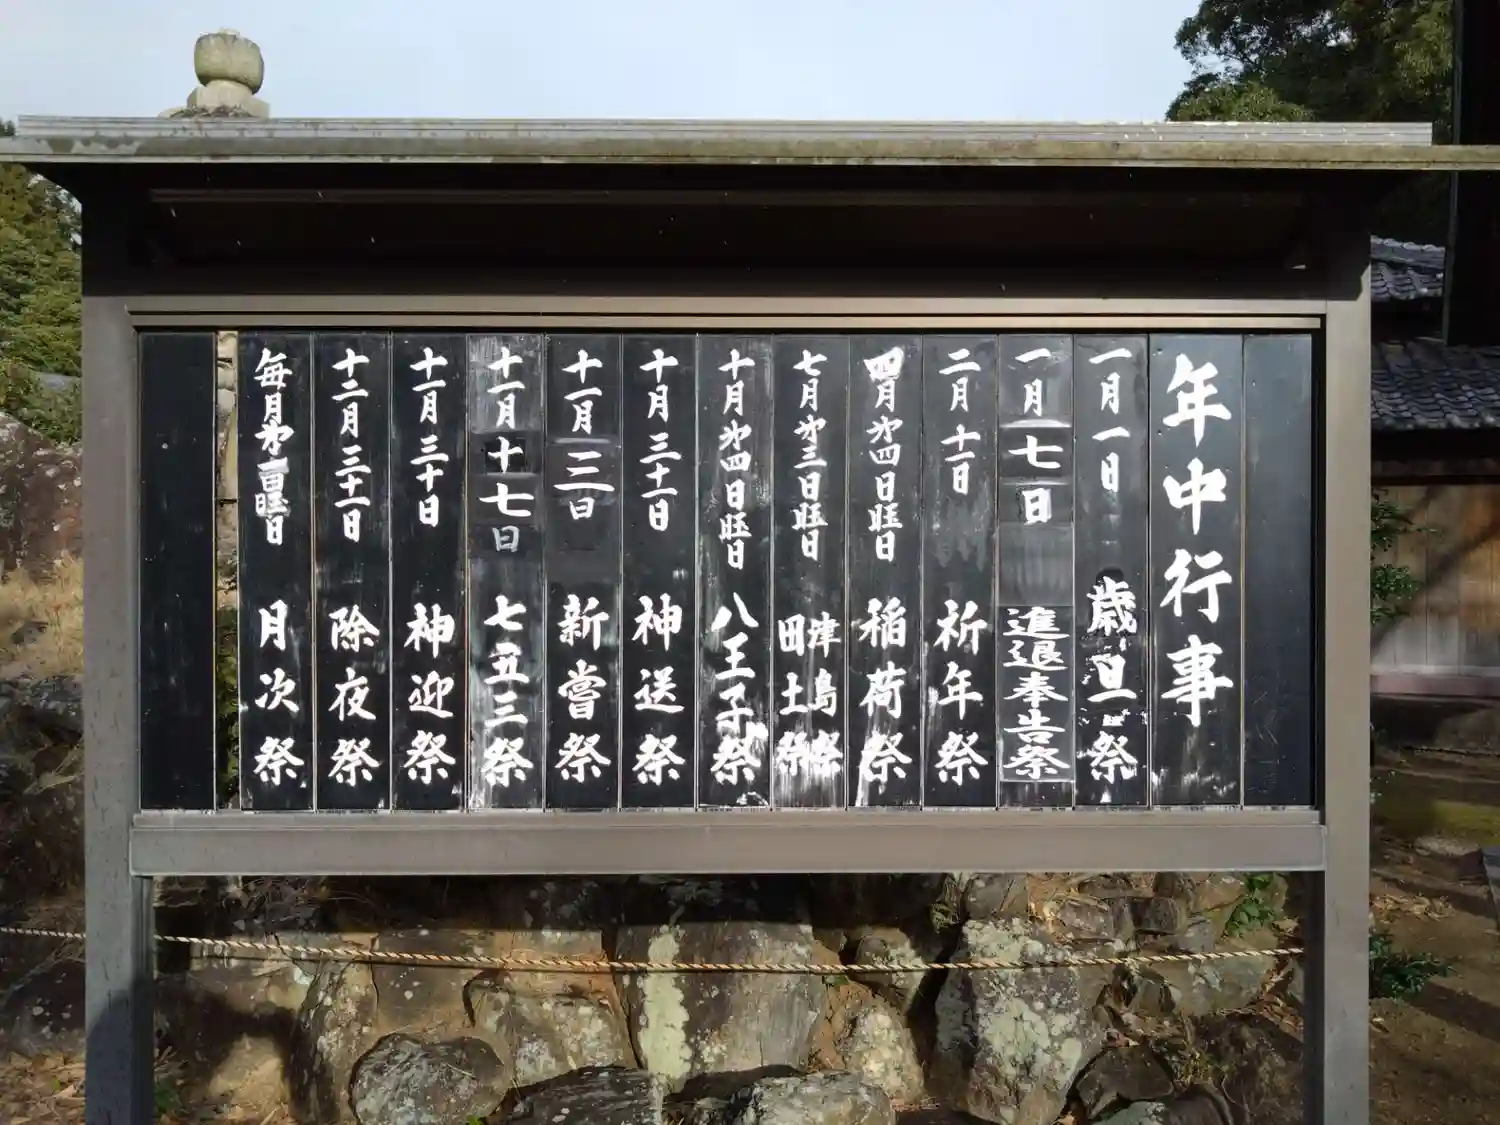 年中行事
一月一日 歳旦祭
一月一七日 進退奉告祭
二月十一日 祈年祭
四月第四日曜日 稲荷祭
七月第三日曜日 津島祭 田土祭
十月第四日曜日 八王子祭
十月三十一日 神送祭
十一月三日 新嘗祭
十一月十七日 七五三祭
十一月三十日 神迎祭
十二月三十一日 除夜祭
毎月第一日曜日 月次祭